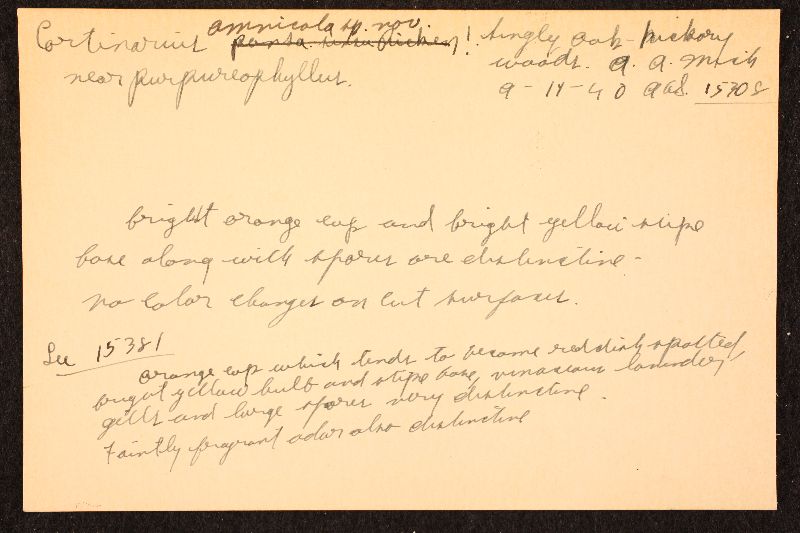 Cortinarius amnicola sp. nov.
near purpureophyllus.
! singly oak-hickory
woods. A. A. Mich
9-14-40 AHS. 15308
bright orange cap and bright yellow stipe
base along with spores are distinctive -
no color changes on cut surfaces.
See 15381
orange cap which tends to become reddish spotted,
bright yellow bulb and stipe base, vinaceous lavender
gills and large spores very distinctive.
Faintly fragrant odor also distinctive